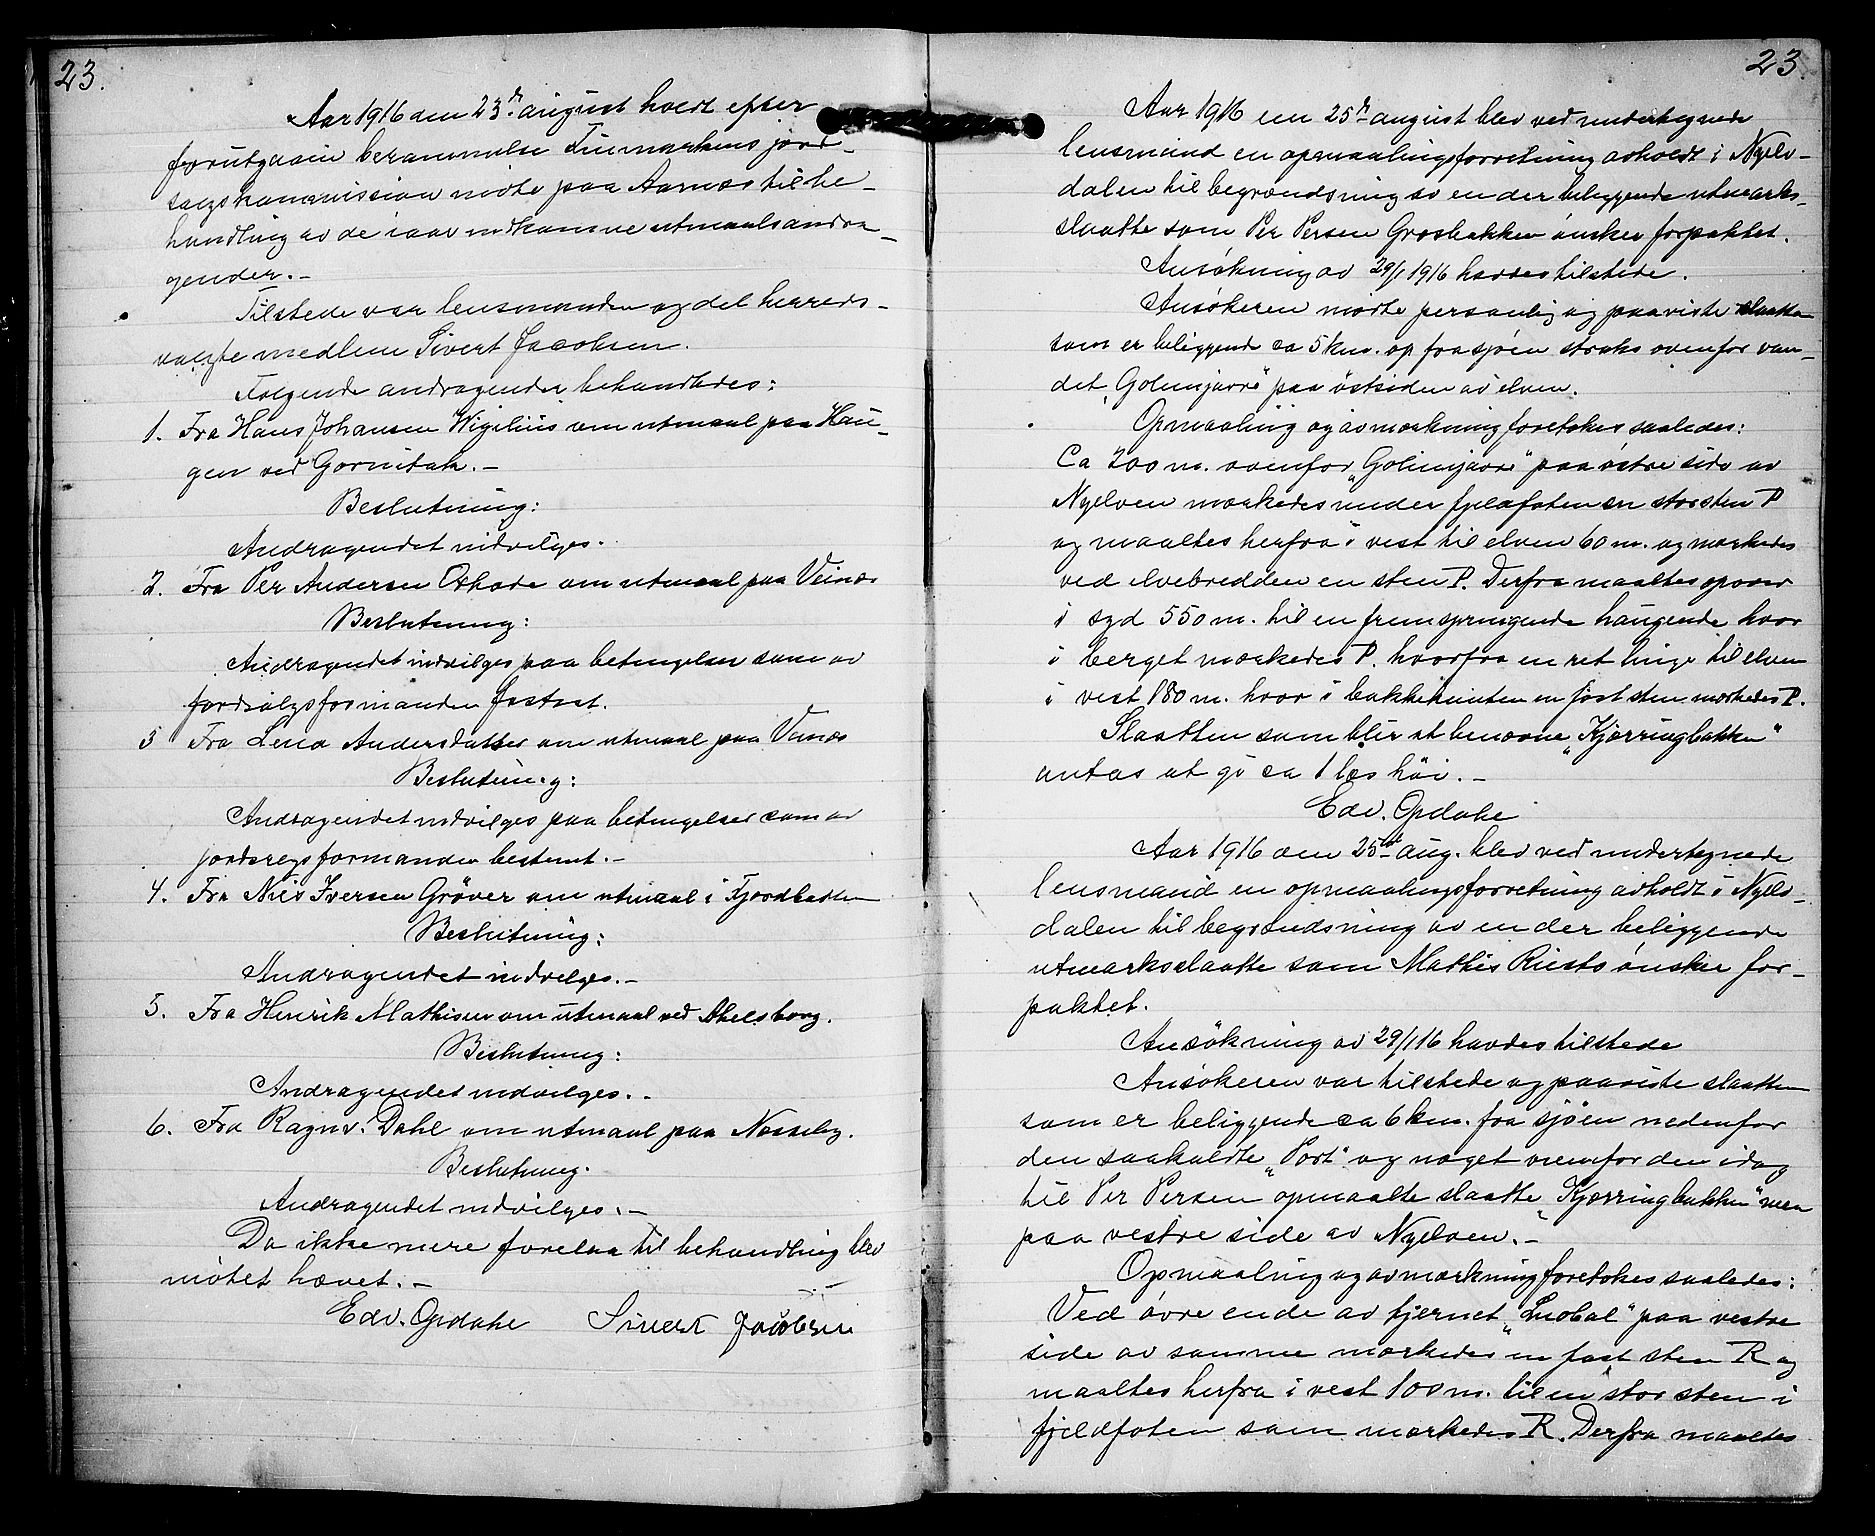 23.
Aar 1916 den 23de august holdt efter
forutgaaen berammelse Finmarkens jord-
salgskommission møte paa Aarnæs til be-
handling av de iaar indkomne utmaalsandra-
gender.-
Tilstede var lensmanden og det herreds-
valgte medlem Sivert Jacobsen.
Følgende andragender behandledes:
1. Fra Hans Johansen Wigelius om utmaal paa Hau-
gen ved Gornitak.-
Beslutning:
Andragendet indvilges.
2. Fra Per Andersen om utmaal paa Veinæs
Beslutning:
Andragendet indvilges paa betingelser som av
jordsalgsformanden fastsat.
3 Fra Lena Andersdatter om utmaal paa Veinæs
Beslutning:
Andragendet indvilges paa betingelser som av
jordsalgsformanden bestemt.-
4. Fra Nils Iversen Grøver om utmaal i Fjordbotten
Beslutning:
Andragendet indvilges.-
5. Fra Henrik Mathisen om utmaal ved
Beslutning:
Andragendet indvilges.-
6. Fra Ragnv. Dahl om utmaal paa Nesseby.
Beslutning.
Andragendet indvilges.-
Da ikke mere forelaa til behandling blev
møtet hævet.-
Edv. Opdahl Sivert Jacobsen
23.
Aar 1916 den 25de august blev ved undertegnede
lensmand en opmaalingsforretning avholdt i Nyelv-
dalen til begrændsning av en der beliggende utmarks-
slaatte som Per Persen Grasbakken ønsker forpaktet.
Ansøkning av 29/1 1916 havdes tilstede.
Ansøkeren møtte personlig og paaviste slaatten
som er beliggende ca 5 km. op fra sjøen straks ovenfor van-
det „Golmejavre" paa østsiden av elven.
Opmaaling og avmerkning foretokes saaledes:
Ca 200 m. ovenfor „Golmejavre" paa østre side av
Nyelven merkedes under fjeldfoten en stor sten P
og maaltes herfra i vest til elven 60 m. og merkedes
ved elvebredden en sten P. Derfra maaltes opover
i syd 550 m. til en fremspringende haugende hvor
i berget merkedes P. hvorfra en ret linje til elven
i vest 180 m. hvor i bakkekanten en fast sten merkedes P.
Slaatten som blir at benævne „Kjærringbakken"
antas at gi ca 1 læs høi.-
Edv. Opdahl
Aar 1916 den 25de aug. blev ved undertegnede
lensmand en opmaalingsforretning avholdt i Nyelv-
dalen til begrændsning av en der beliggende
utmarksslaatte som Mathis Riesto ønsker for-
paktet.
Ansøkning av 29/1 16 havdes tilstede
Ansøkeren var tilstede og paaviste slaatten
som er beliggende ca 6 km. fra sjøen nedenfor
den saakaldte „Port" og noget ovenfor den idag
til Per Persen opmaalte slaatte „Kjærringbakken" men
paa vestre side av Nyelven.-
Opmaaling og avmerkning foretokes saaledes:
Ved øvre ende av tjernet „Luobal" paa vestre
side av samme merkedes en fast sten R og
maaltes herfra i vest 100 m. til en stor sten i
fjeldfoten som merkedes R. Derfra maaltes